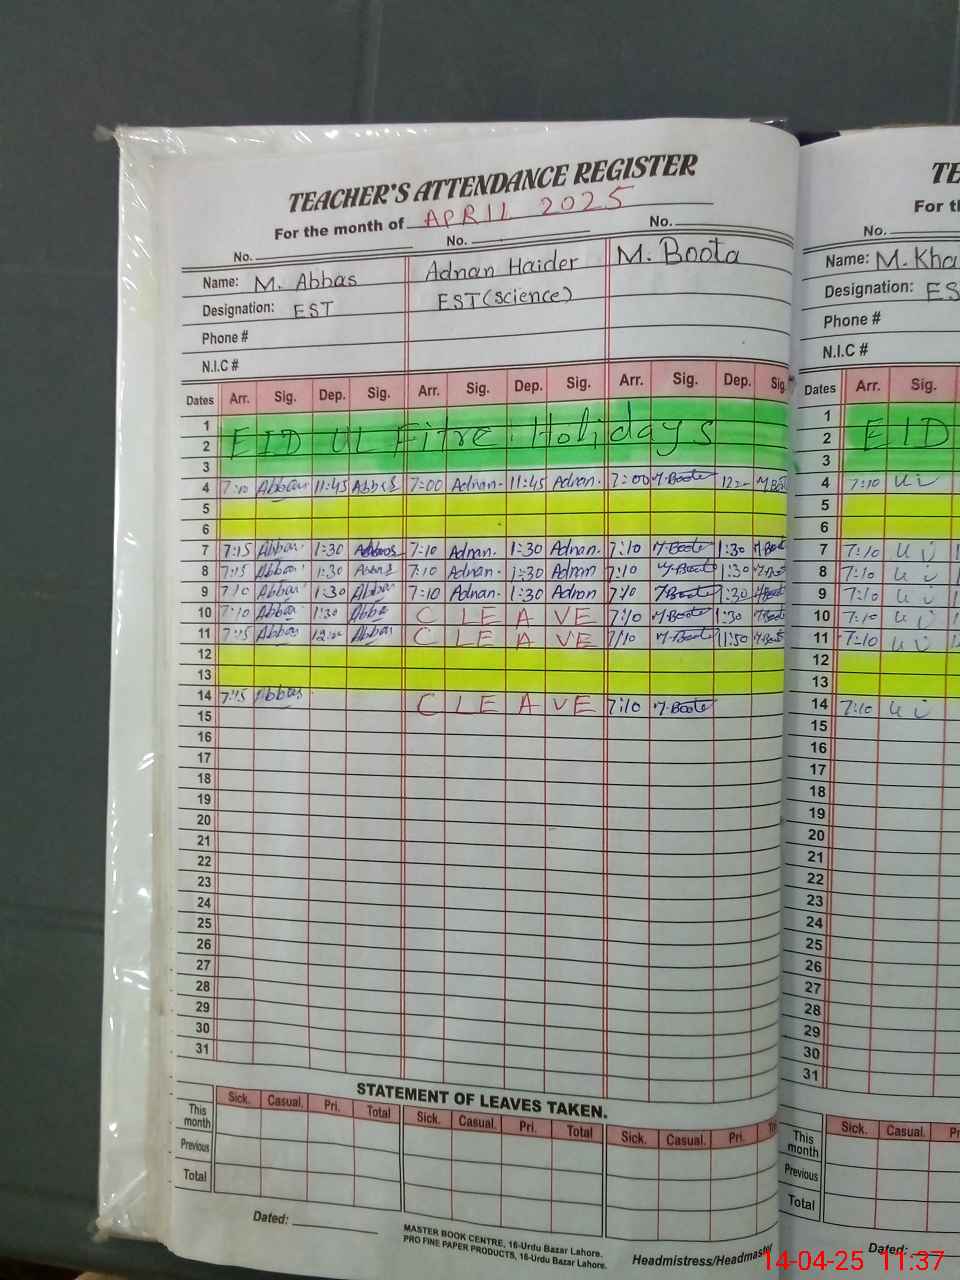 TEACHER'S ATTENDANCE REGISTER
For the month of APRIL 2025
No. No. No.
Name: M. Abbas Adnan Haider M. Boota
Designation: EST EST(science)
Phone #
N.I.C #
Dates Arr. Sig. Dep. Sig. Arr. Sig. Dep. Sig. Arr. Sig. Dep. Sig.
1
2 EID UL Fitre Holidays
3
4 7:10 Abbas 11:45 Abbas 7:00 Adnan. 11:45 Adnan. 7:00 M.Boota M.Boo
5
6
7 7:15 Abbas 1:30 Abbas 7:10 Adnan. 1:30 Adnan. 7:10 M.Boota 1:30 M.Boo
8 7:15 Abbas 1:30 Abbas 7:10 Adnan. 1:30 Adnan 7:10 M.Boota 1:30 M.Boo
9 7:10 Abbas 1:30 Abbas 7:10 Adnan. 1:30 Adnan 7:10 M.Boota 1:30 M.Boo
10 7:10 Abbas 1:30 Abbas C LEAVE 7:10 M.Boota 1:30 M.Boota
11 7:15 Abbas 12:00 Abbas C LEAVE 7:10 M.Boota 11:50 M.Boot
12
13
14 7:15 Abbas C LEAVE 7:10 M.Boota
15
16
17
18
19
20
21
22
23
24
25
26
27
28
29
30
31
STATEMENT OF LEAVES TAKEN.
Sick. Casual. Pri. Total Sick. Casual. Pri. Total Sick. Casual. Pri.
This month
Previous
Total
Dated:
MASTER BOOK CENTRE, 16-Urdu Bazar Lahore.
PRO FINE PAPER PRODUCTS, 16-Urdu Bazar Lahore.
Headmistress/Headmaster
TE
For th
No.
Name: M. Kha
Designation: ES
Phone #
N.I.C #
Dates Arr. Sig.
1
2 EID
3
4 7:10
5
6
7 7:10
8 7:10
9 7:10
10 7:10
11 7:10
12
13
14 7:10
15
16
17
18
19
20
21
22
23
24
25
26
27
28
29
30
31
Sick. Casual. Pr
This month
Previous
Total
Dated:
14-04-25 11:37